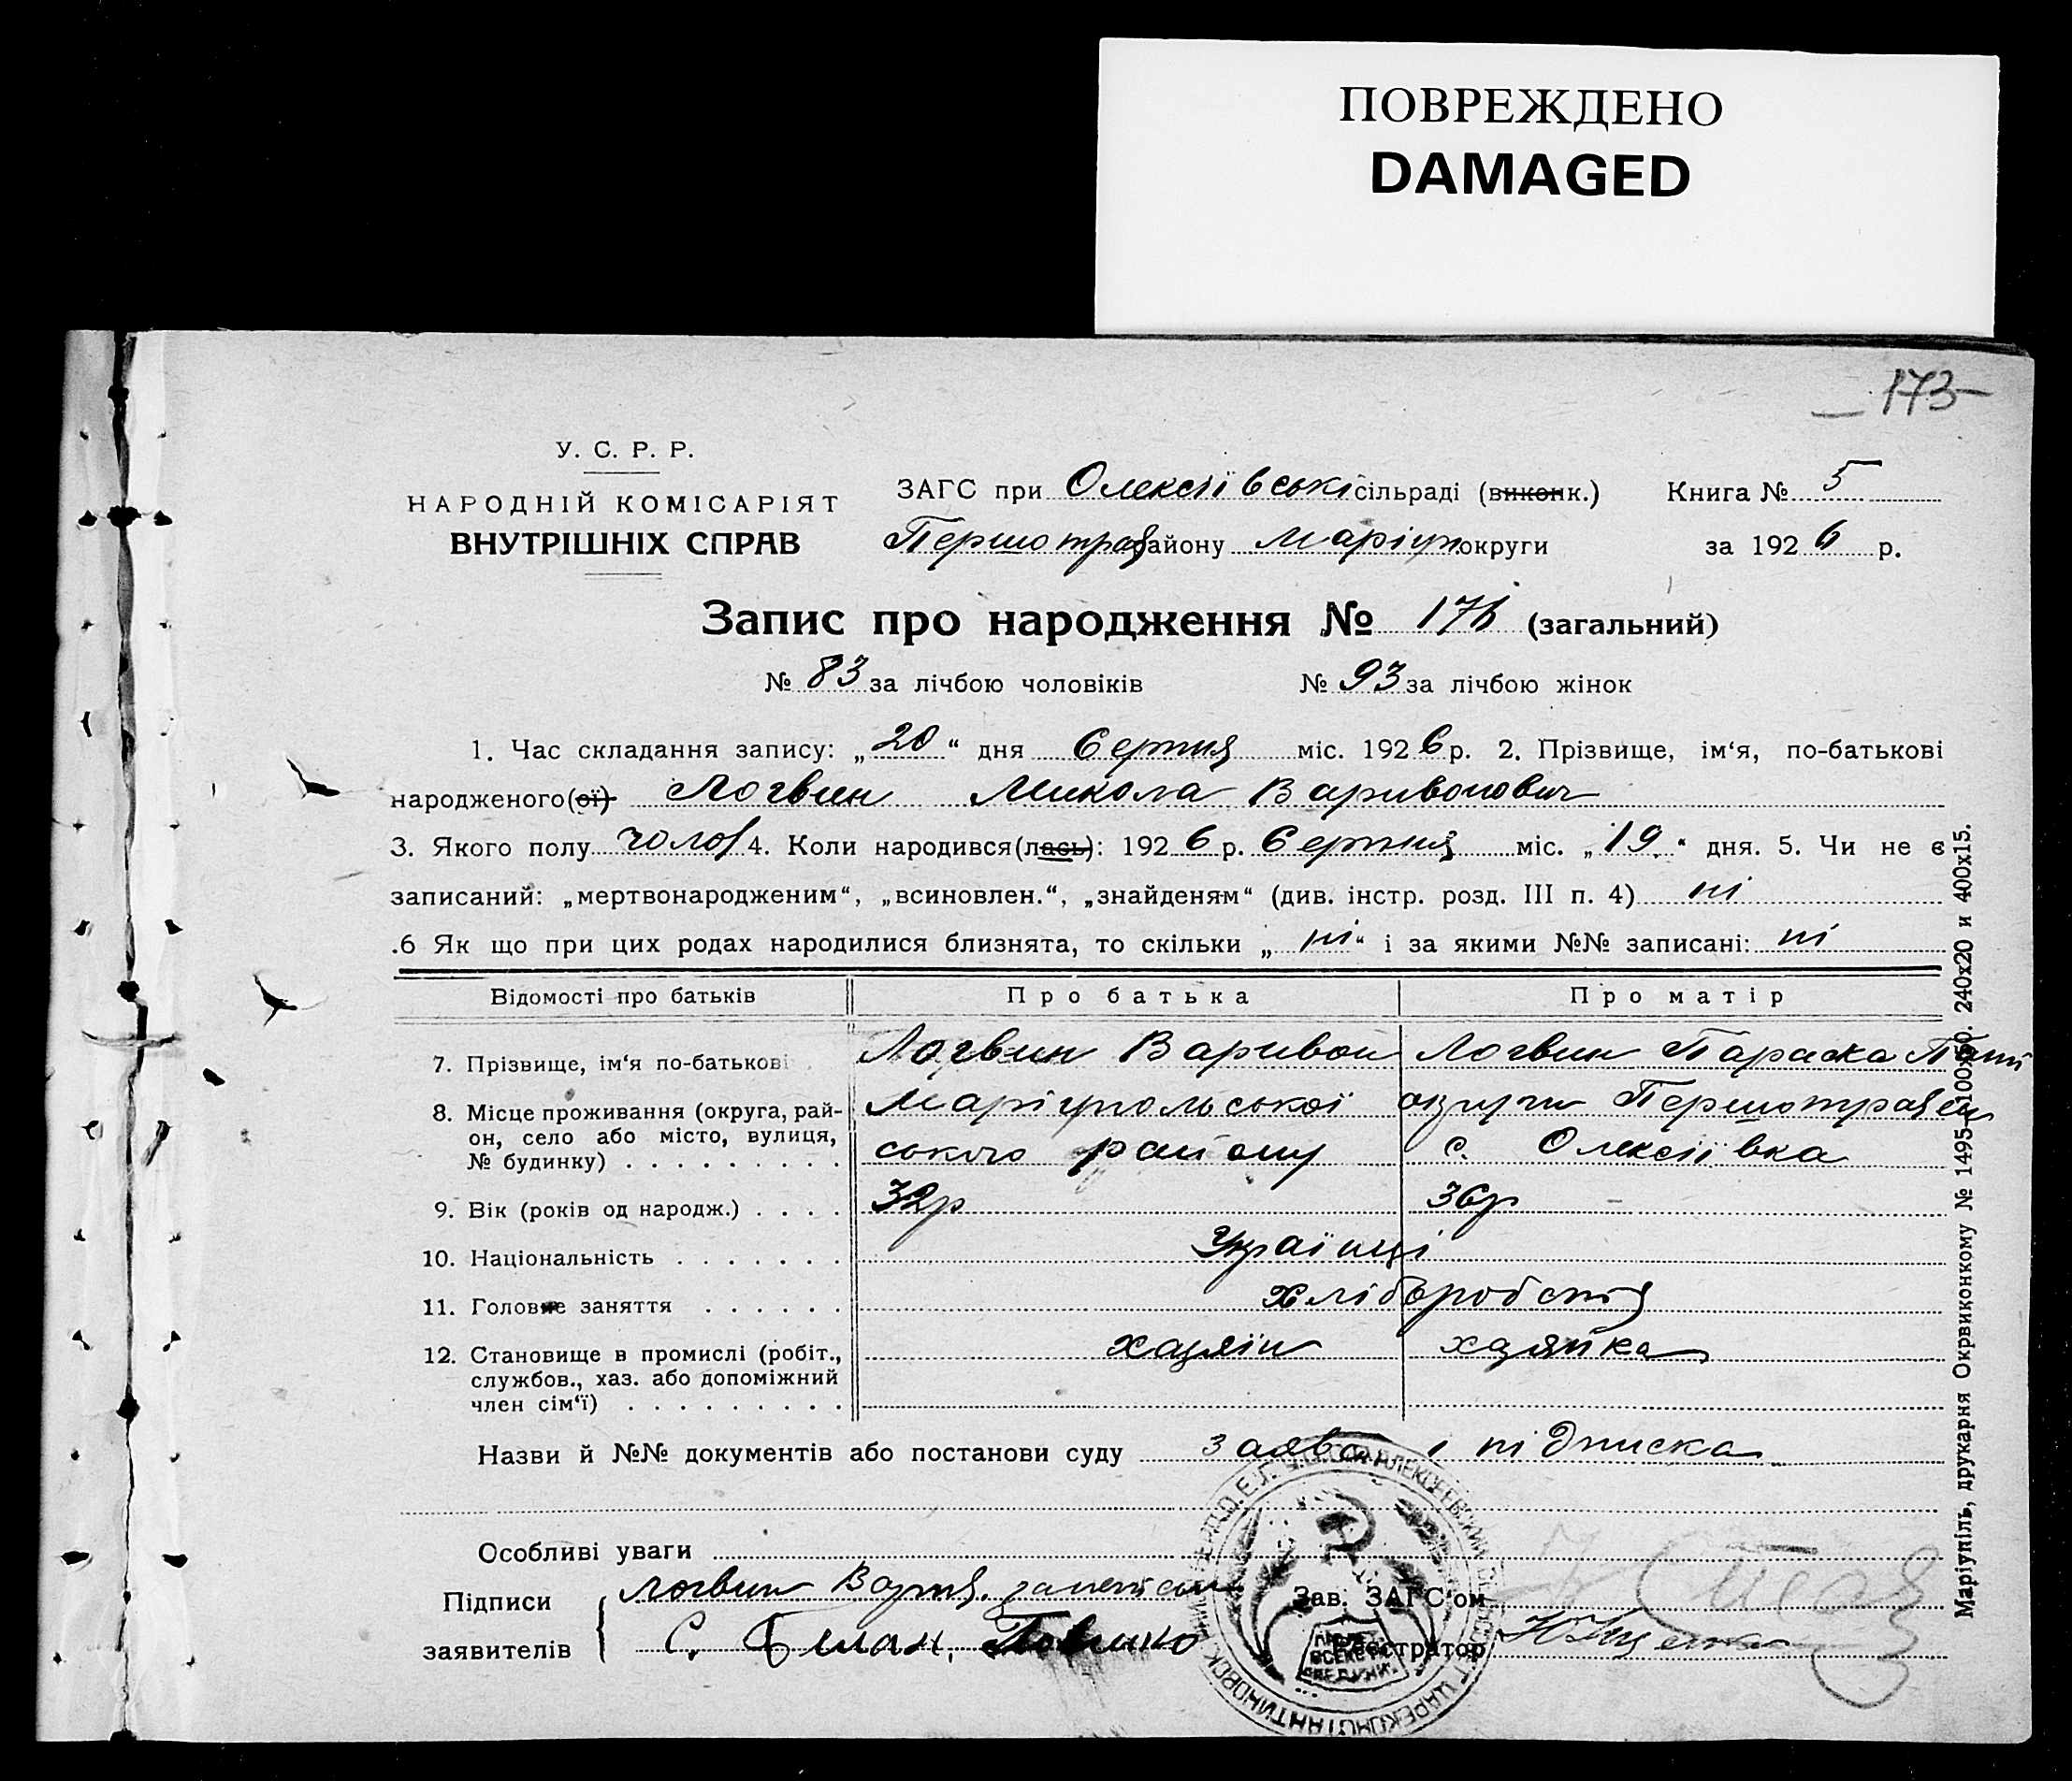 ПОВРЕЖДЕНО
DAMAGED
173
У. С. Р. Р.
НАРОДНІЙ КОМІСАРІЯТ
ВНУТРІШНІХ СПРАВ
ЗАГС при Олексіївські сільраді (виконк.) Книга № 5
Першотрав району Маріуп. округи за 1926 р.
Запис про народження № 176 (загальний)
№ 83 за лічбою чоловіків № 93 за лічбою жінок
1. Час складання запису: „20“ дня Серпня міс. 1926 р. 2. Прізвище, ім‘я, по-батькові
народженого(ої) Логвин Микола Варивонович
3. Якого полу чолов 4. Коли народився(лась): 1926 р. Серпня міс. „19“ дня. 5. Чи не є
записаний: „мертвонародженим“, „всиновлен.“, „знайденям“ (див. інстр. розд. III п. 4) ні
.6 Як що при цих родах народилися близнята, то скільки „ні“ і за якими №№ записані: ні
Відомості про батьків Про батька Про матір
7. Прізвище, ім‘я по-батькові Логвин Варивон Логвин Параска
8. Місце проживання (округа, рай-
он, село або місто, вулиця,
№ будинку) . . . . . . . . .
Маріупольської округи Першотравен
ського району с. Олексіївка
9. Вік (років од народж.) . . . . 32р 36р
10. Національність . . . . . . . Українці
11. Головне заняття . . . . . . Хліборобств
12. Становище в промислі (робіт.,
службов., хаз. або допоміжний
член сім‘ї) . . . . . . . . .
хазяїн хазяйка
Назви й №№ документів або постанови суду заява і підписка
Особливі уваги
Підписи
заявителів
Логвин
Зав. ЗАГС‘ом
Реєстратор
Маріупіль, друкарня Окрвиконкому № 1495—100х50. 240х20 и 400х15.